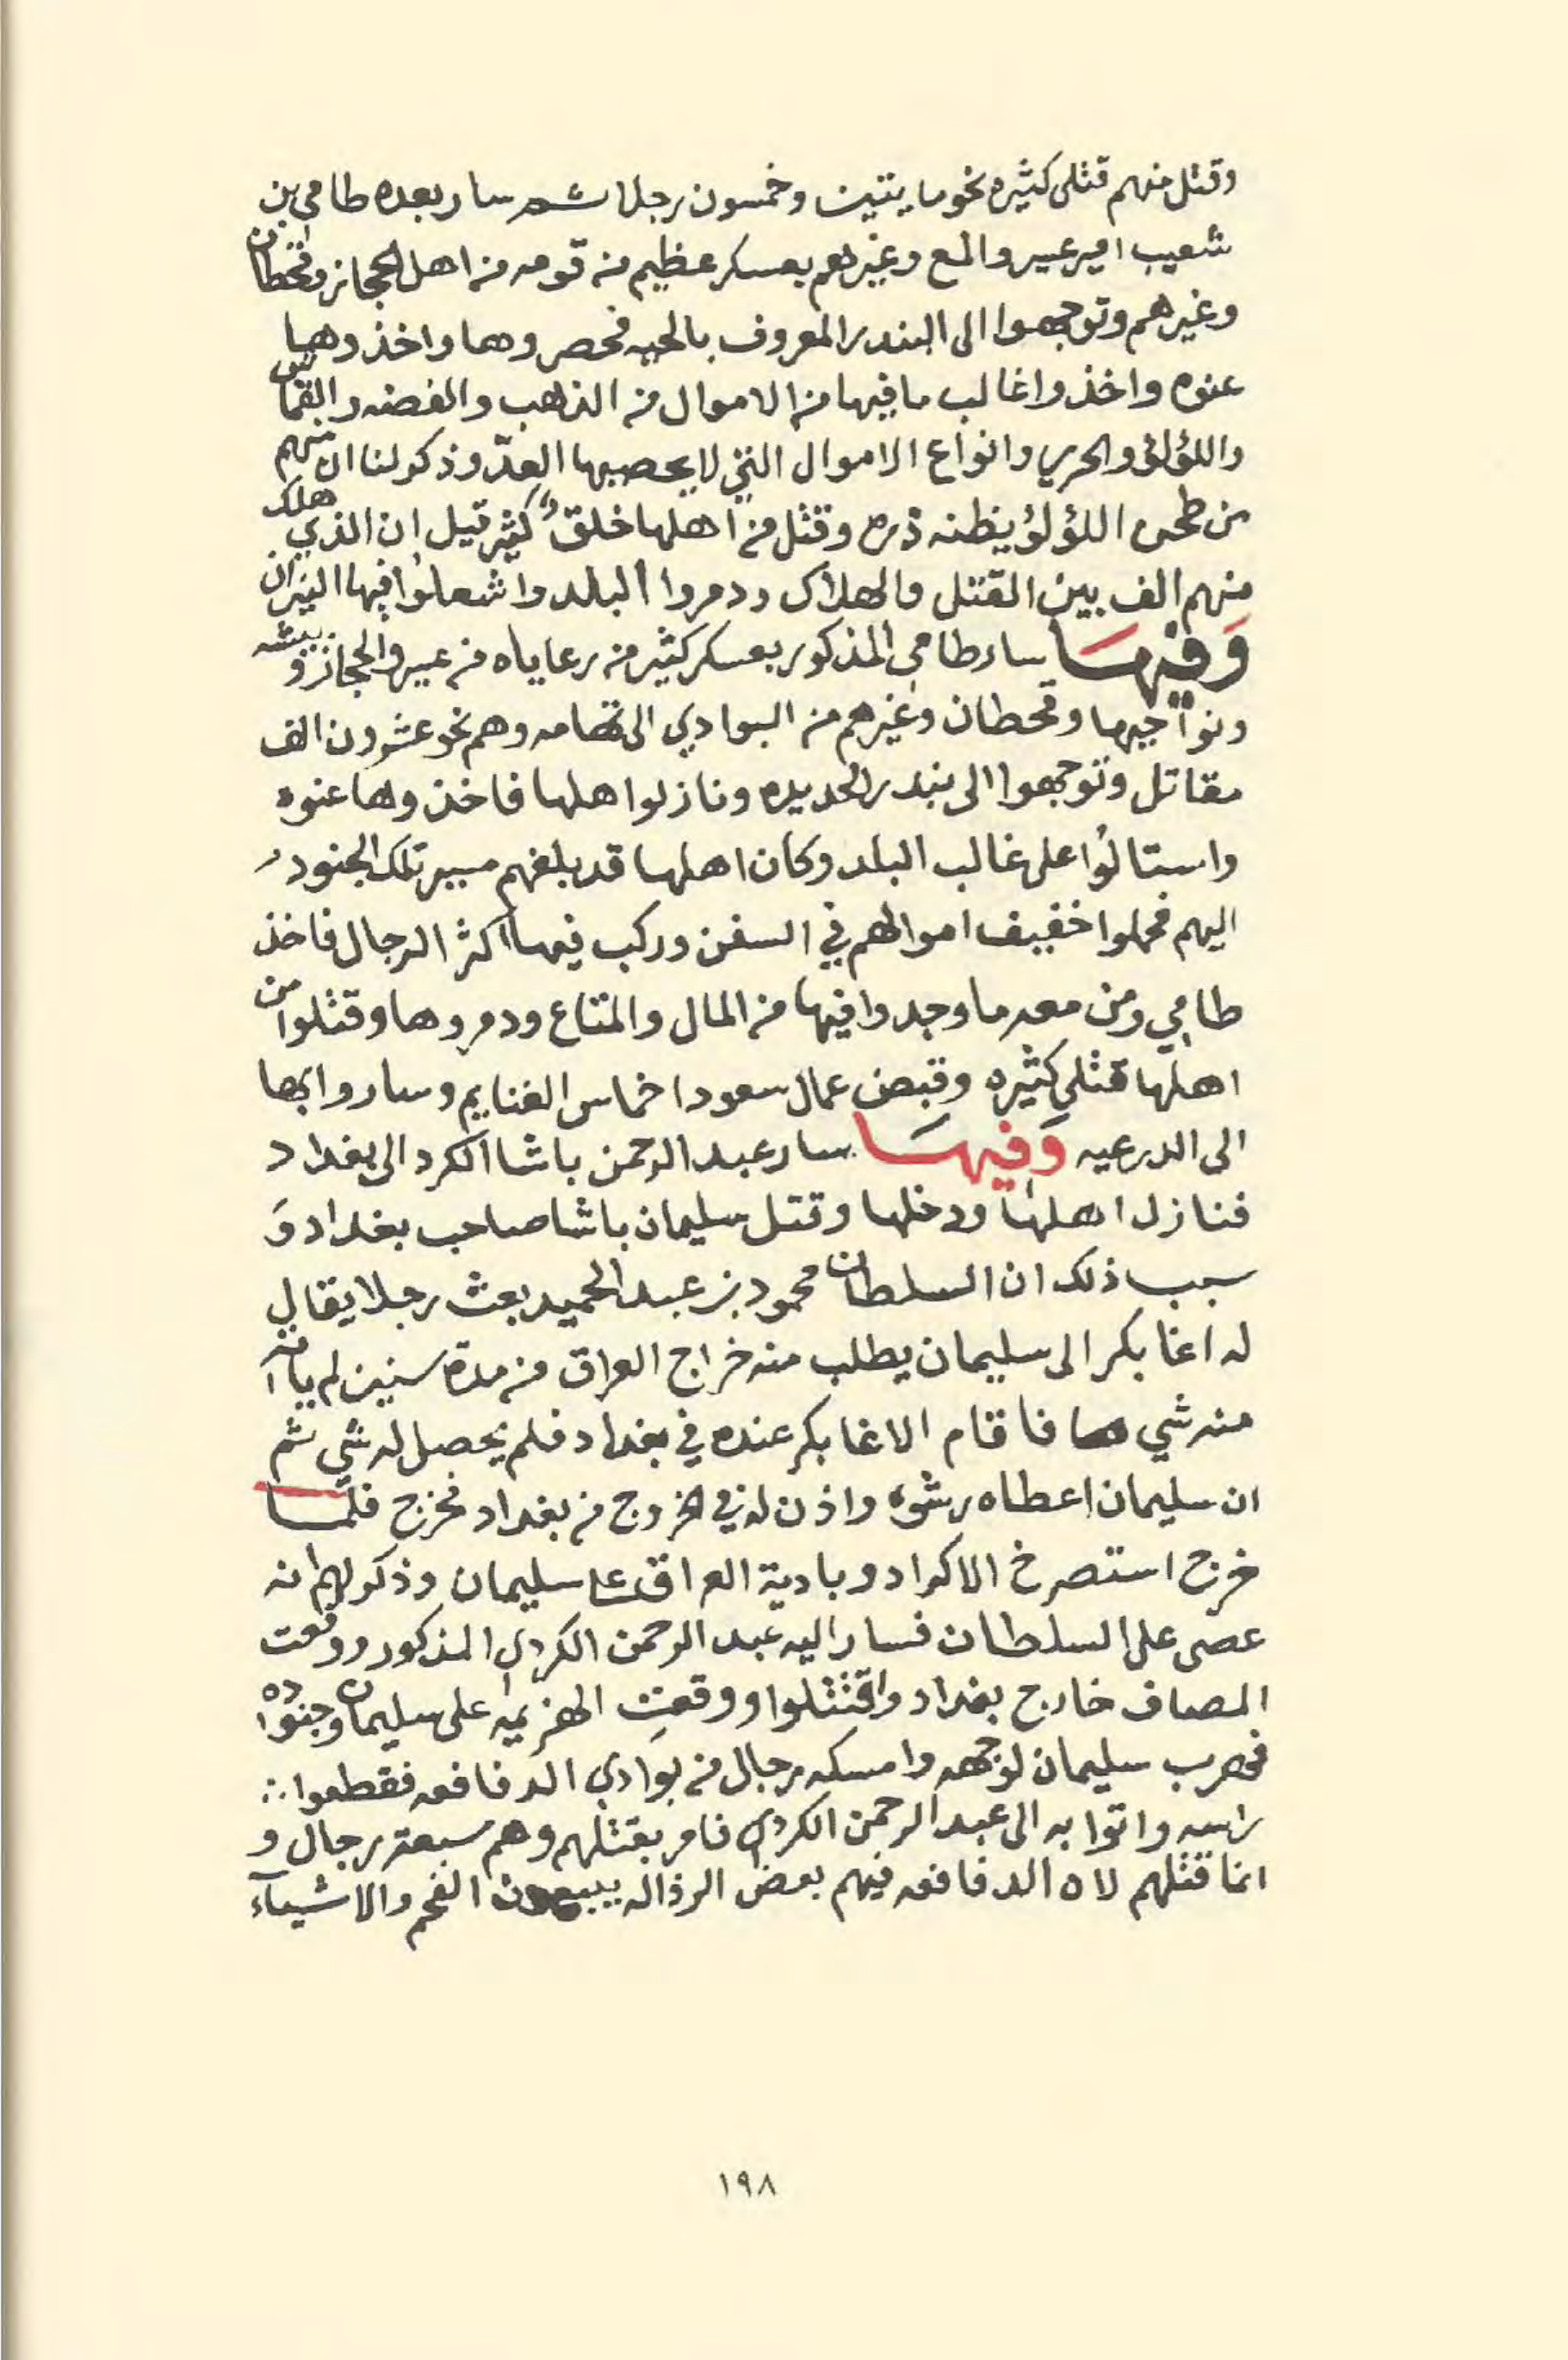 وقتل منهم قتلى كثيره نحو مايتين وخمسون رجلا ثم سار بعده طامي بن
شعيب امير عسير والمع وغيرهم بعسكر عظيم من قومه من اهل الحجاز وقحطان
وغيرهم وتوجهوا الى البندر المعروف بالحيه فحصروها واخذوها
عنوه واخذوا غالب ما فيها من الاموال من الذهب والفضه والقماش
واللؤلؤ والحرير وانواع الاموال التي لا يحصيها العدّ وذكر لنا ان منهم
من طحن اللؤلؤ يظنه ذره وقتل من اهلها خلقٌ كثير قيل ان الذي هلك
منهم الف بين القتل والهلاك ودمروا البلد واشعلوا فيها النيران
وَفيْهسَا سار طامي المذكور بعسكر كثير من رعاياه من عسير والحجاز وبيشه
ونواحيها وقحطان وغيرهم من البوادي الى تهامه وهم نحو عشرون الف
مقاتل وتوجهوا الى بندر الحديده ونازلوا هلها فاخذوها عنوه
واستالوا على غالب البلد وكان اهلها قد بلغهم مسير تلك الجنود
اليهم فحملوا خفيف اموالهم في السفن وركب فيها اكثر الرجال فاخذ
طامي ومن معه ما وجدوا فيها من المال والمتاع ودمروها وقتلوا من
اهلها قتلى كثيره وقبض عمال سعود اخماس الغنايم وساروا بها
الى الدرعيه وَفيهسَا سار عبد الرحمن باشا الكرد الى بغداد
فنازل اهلها ودخلها وقتل سليمان باشا صاحب بغداد وَ
سبب ذلك ان السلطان محمود بن عبد الحميد بعث رجلا يقال
له اغا بكر الى سليمان يطلب منه خراج العراق من مدة سنين لم ياته
منه شي فاقام الاغا بكر عنده في بغداد فلم يحصل له شي ثم
ان سليمان اعطاه رشوه واذن له في الخروج من بغداد فخرج فلمّا
خرج استصرخ الاكراد وبادية العراق على سليمان وذكر لهم انه
عصى على السلطان فسار اليه عبد الرحمن الكردي المذكور ووقعت
المصاف خارج بغداد واقتتلوا ووقعت الهزيمه على سليمان وجنوده
فهرب سليمان لوجهه وامسكه رجال من بوادي الدفافعه فقطعوا
راسه واتوا به الى عبد الرحمن الكردي فامر بقتلهم وهم سبعة رجال و
انما قتلهم لان الدفافعه فيهم بعض الرذاله يبيعون الفحم والاشيآء
١٩٨